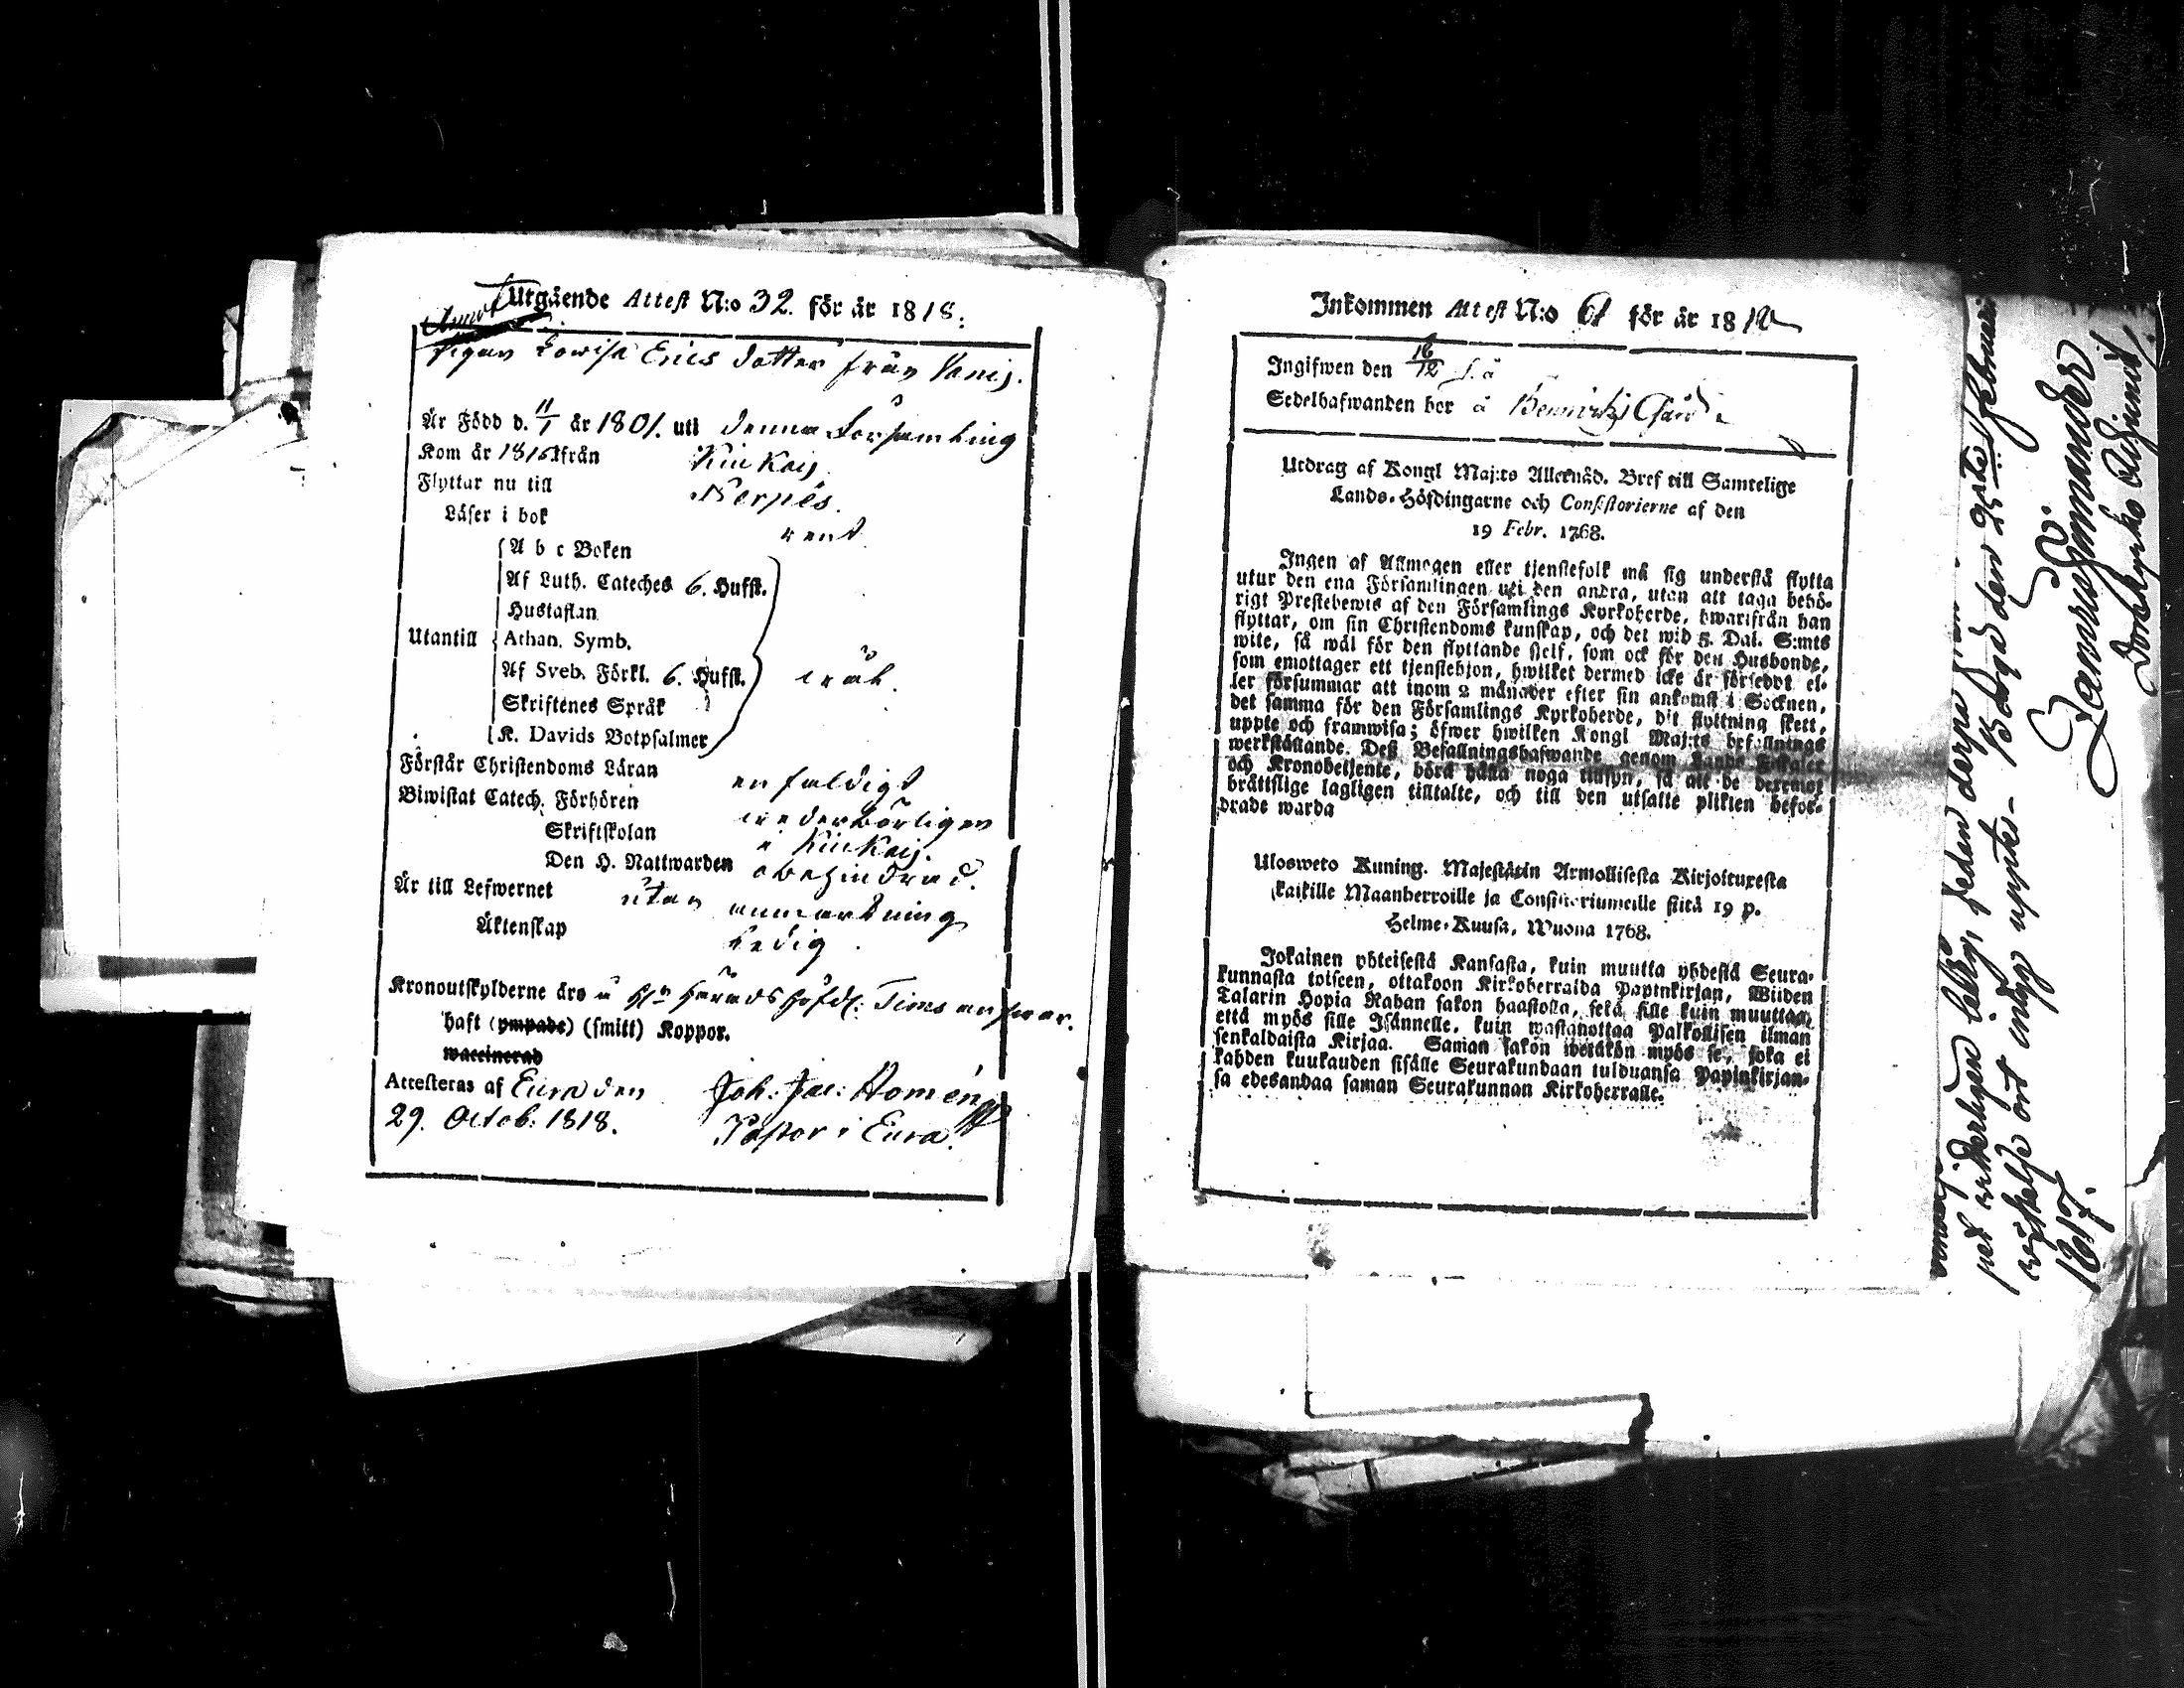 Utgående Attest N:o 32. för år 1818.
Pigan Lowisa Erics dotter från
Är Född d. 11/1 år 1801. uti denna Församling
Kom år 1816 ifrån Kiukais
Flyttar nu till Nerpės.
Läser i bok rent
A b c Boken
Af Luth. Cateches 6. Hufst.
Hustaflan
Utantill Athan. Symb.
Af Sveb. Förkl. 6. Hufst. wäl.
Skriftenes Språk
K. Davids Botpsalmer
Förstår Christendoms Läran enfaldigt
Biwistat Catech. Förhören wederbörligen
Skriftskolan i Kiukais.
Den H. Nattwarden obehindrad.
Är till Lefwernet utan anmärkning
Äktenskap Ledig.
Kronoutskylderne äro å Hr Häradshöfd. answar.
haft (ympade) (smitt) Koppor.
waccinerad
Attesteras af Eura den Joh. Jac: Homén
29. Octob: 1818. Pastor i Eura.
Inkommen Attest N:o 61 för år 1818
Ingifwen den 16/12 s. å
Sedelhafwanden bor å Gård
Utdrag af Kongl Maj:ts Allernåd. Bref till Samtelige
Lands-Höfdingarne och Consistorierne af den
19 Febr. 1768.
Ingen af Allmogen eller tjenstefolk må sig understå flytta
utur den ena Församlingen uti den andra, utan att taga behö-
rigt Prestebewis af den Församlings Kyrkoherde, hwarifrån han
flyttar, om sin Christendoms kunskap, och det wid 5. Dal. S:mts
wite, så wäl för den flyttande sielf, som ock för den Husbonde,
som emottager ett tjenstehjon, hwilket dermed icke är försedt el-
ler försummar att inom 2 månader efter sin ankomst i Socknen,
det samma för den Församlings Kyrkoherde, dit flyttning skett,
uppte och framwisa; öfwer hwilken Kongl Maj:ts befallnings
werkställande. Deß Befallningshafwande genom Lands Fiskaler
och Kronobetjente, börå hålla noga tillsyn, så att de deremot
bråttslige lagligen tilltalte, och till den utsatte plikten befor-
drade warda
Ulosweto Kuning. Majestätin Armollisesta Kirjoituxesta
kaikille Maanherroille ja Consistoriumeille siitä 19 p.
Helme-Kuusa, Wuona 1768.
Jokainen yhteisestä Kansasta, kuin muutta yhdestä Seura-
kunnasta toiseen, ottakoon Kirkoherralda Papinkirjan, Wiiden
Talarin Hopia Rahan sakon haastolla, sekä sille kuin muuttaa,
että myös sille Isännelle, kuin wastanottaa Palkollisen ilman
senkaldaista Kirjaa. Saman sakon wetäkön myös se, joka ei
kahden kuukauden sisälle Seurakundaan tulduansa Papinkirjan-
sa edesandaa saman Seurakunnan Kirkoherralle.
Borgå den 25te februarii
1817.
Zach: Cygnæus